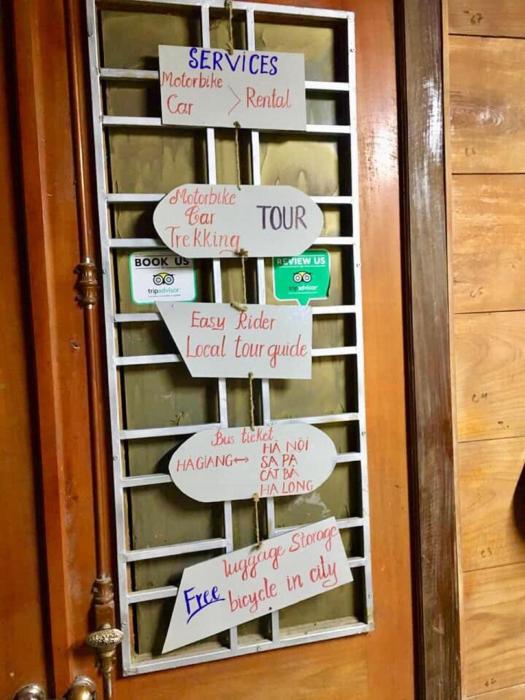 SERVICES
Motorbike
Car > Rental
Motorbike
Car TOUR
Trekking
BOOK US
tripadvisor
REVIEW US
tripadvisor
Easy Rider
Local tour guide
Bus ticket
HÀ GIANG ↔ HÀ NỘI
SA PA
CÁT BÀ
HẠ LONG
luggage Storage
Free bicycle in city